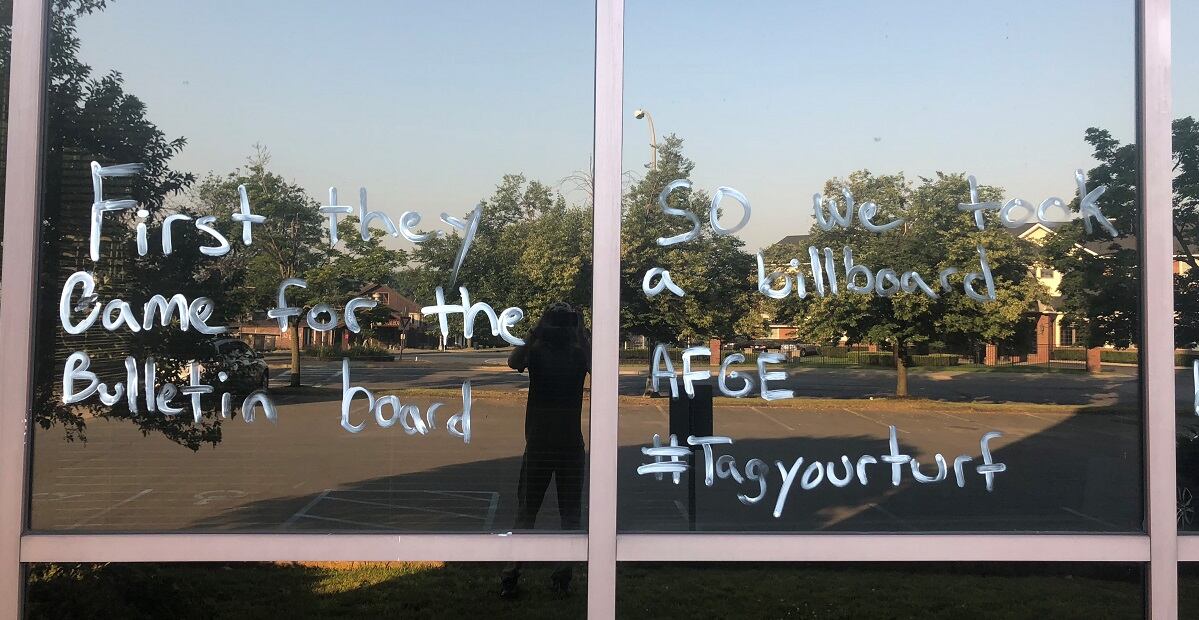 First they
Came for the
Bulletin board
SO we took
a billboard
AFGE
#Tagyourturf